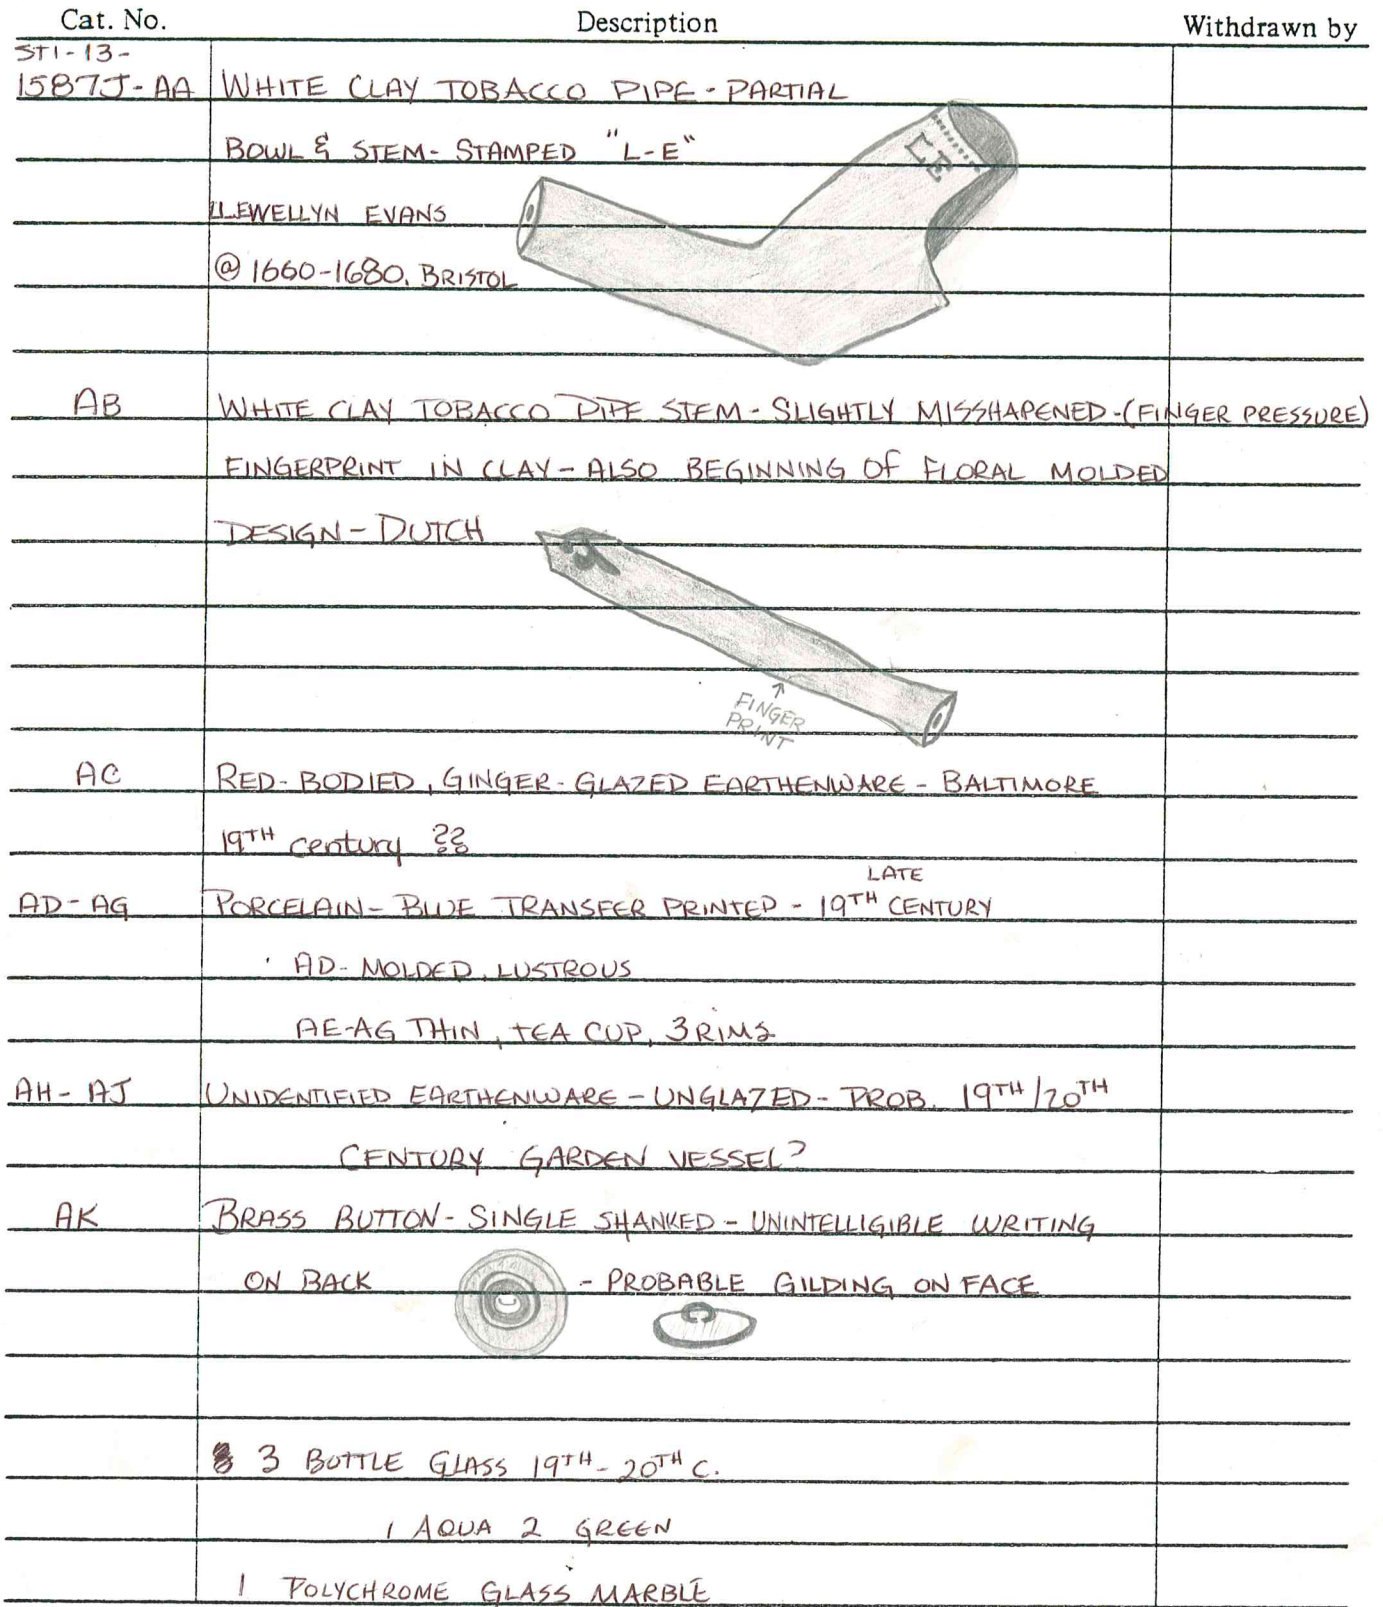 Cat. No. Description Withdrawn by
ST1-13-
1587J-AA WHITE CLAY TOBACCO PIPE - PARTIAL
BOWL & STEM - STAMPED "L-E"
LLEWELLYN EVANS
@ 1660-1680, BRISTOL
LE
AB WHITE CLAY TOBACCO PIPE STEM - SLIGHTLY MISSHAPENED - (FINGER PRESSURE)
FINGERPRINT IN CLAY - ALSO BEGINNING OF FLORAL MOLDED
DESIGN - DUTCH
FINGER
PRINT
AC RED-BODIED, GINGER-GLAZED EARTHENWARE - BALTIMORE
19TH century ??
LATE
AD-AG PORCELAIN - BLUE TRANSFER PRINTED - 19TH CENTURY
AD- MOLDED, LUSTROUS
AE-AG THIN, TEA CUP, 3 RIMS
AH-AJ UNIDENTIFIED EARTHENWARE - UNGLAZED - PROB. 19TH/20TH
CENTURY GARDEN VESSEL?
AK BRASS BUTTON - SINGLE SHANKED - UNINTELLIGIBLE WRITING
ON BACK - PROBABLE GILDING ON FACE
3 BOTTLE GLASS 19TH-20TH C.
1 AQUA 2 GREEN
1 POLYCHROME GLASS MARBLE